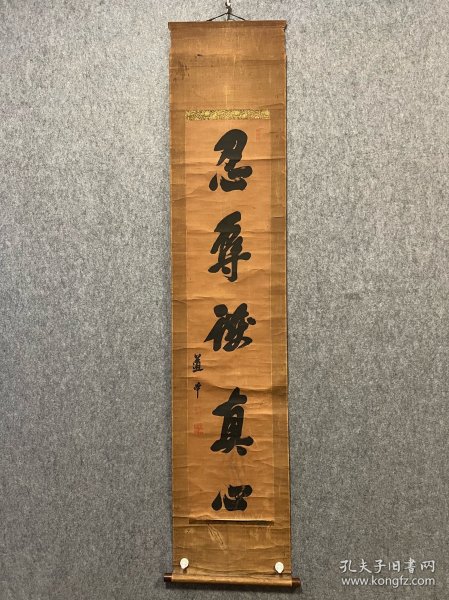 忍辱護真心
孔夫子旧书网
www.kongfz.com